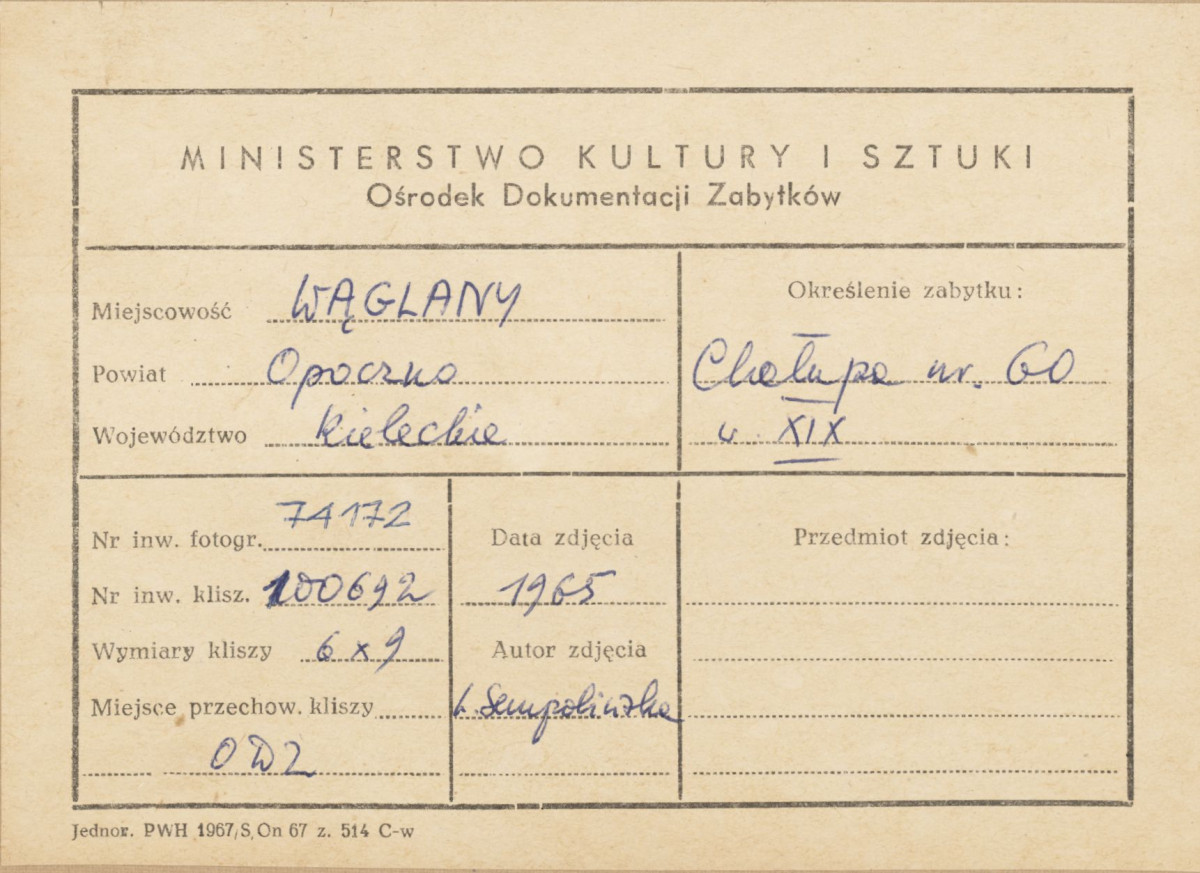 MINISTERSTWO KULTURY I SZTUKI
Ośrodek Dokumentacji Zabytków
Miejscowość WĄGLANY
Powiat Opoczno
Województwo kieleckie
Określenie zabytku:
Chałupa nr. 60
w XIX
Nr inw. fotogr. 74172
Nr inw. klisz. 100692
Wymiary kliszy 6 x 9
Miejsce przechow. kliszy
ODZ
Data zdjęcia
1965
Autor zdjęcia
Ł. Sempolińska
Przedmiot zdjęcia:
Jednor. PWH 1967/S, On 67 z. 514 C-w